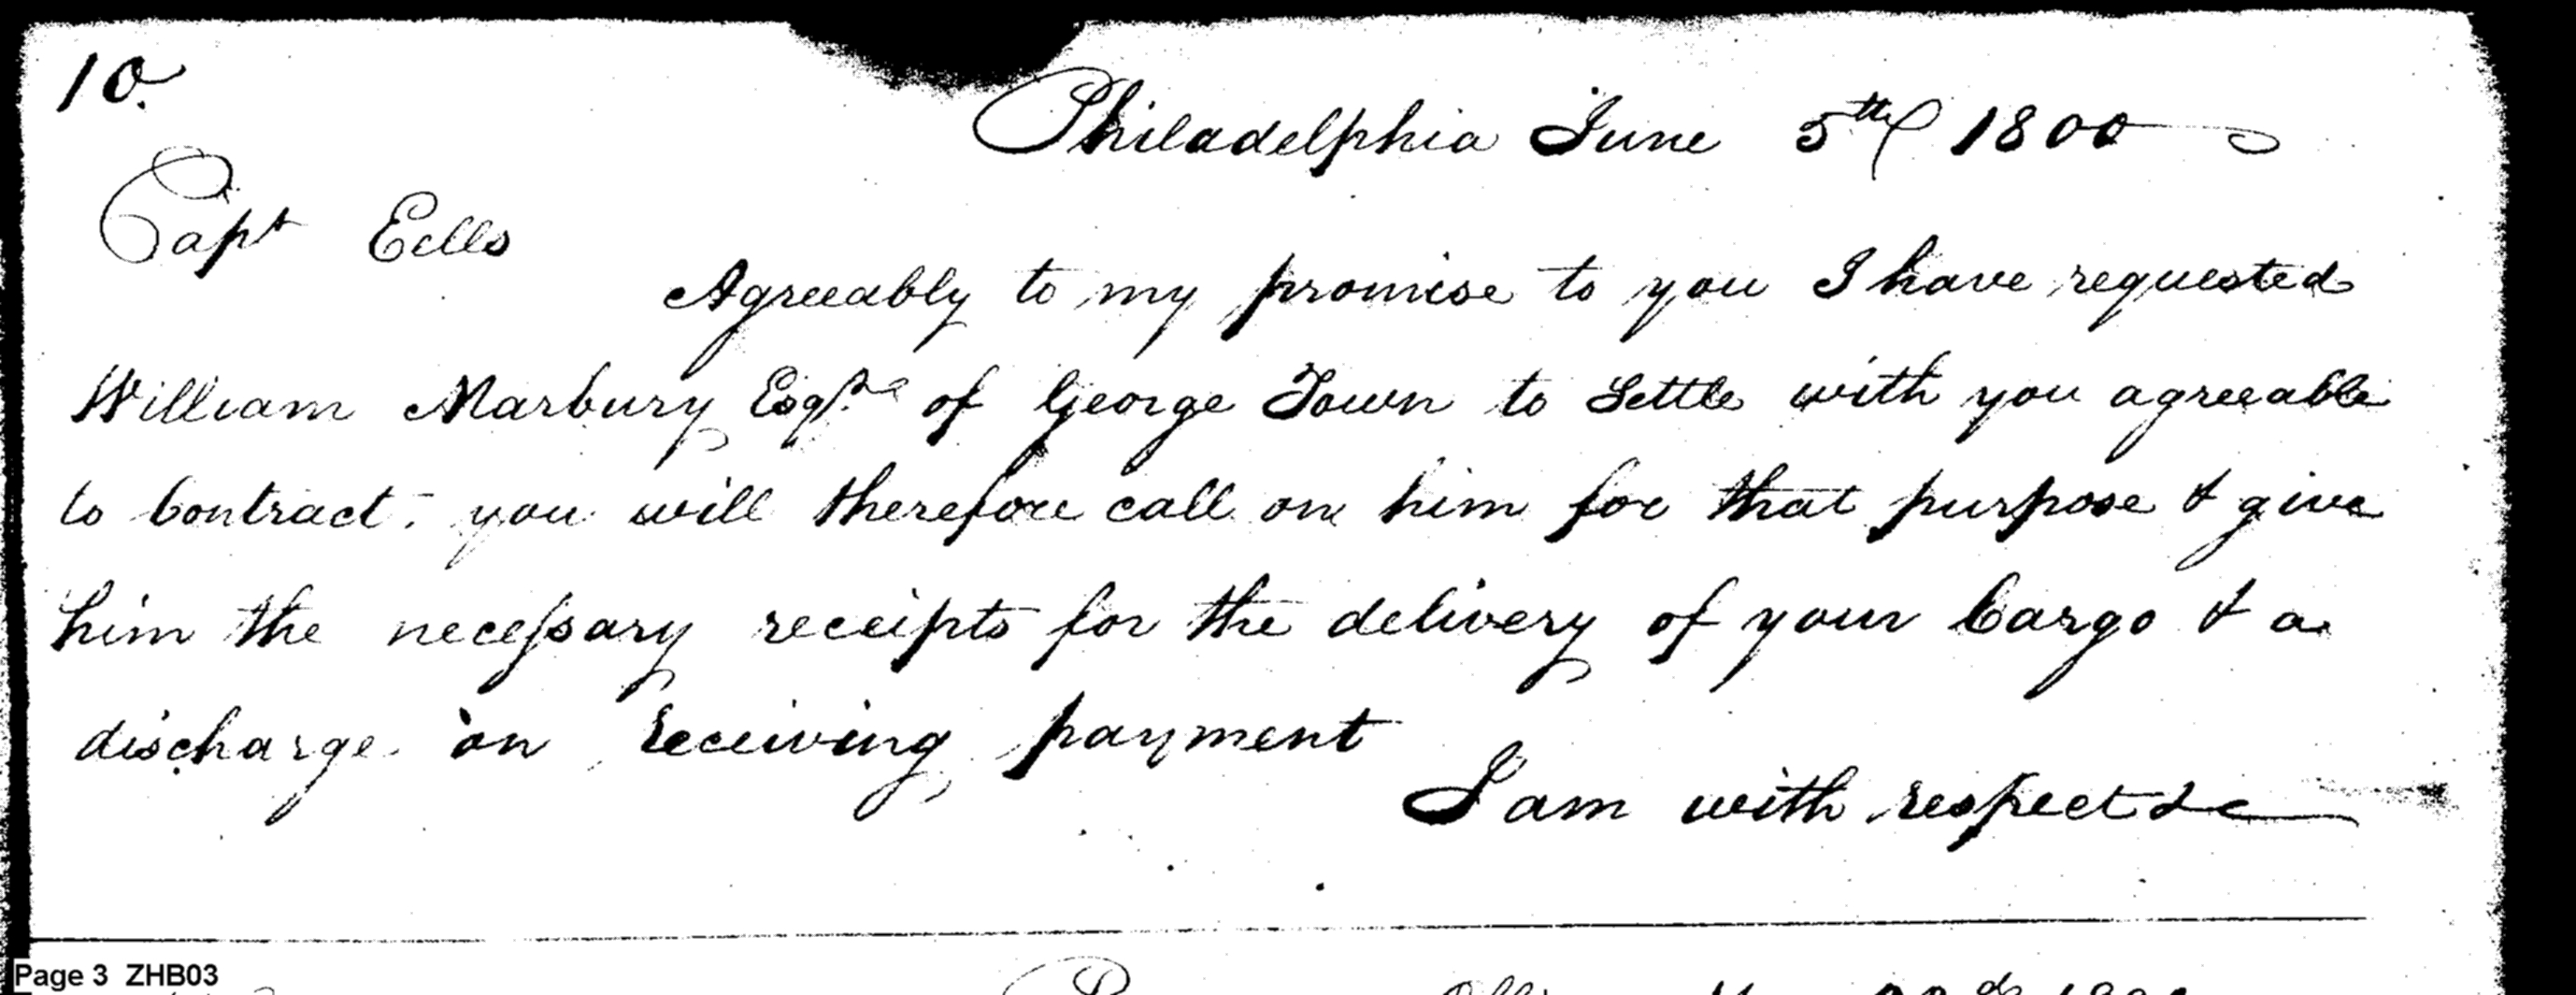 10.
Philadelphia June 5th 1800
Capt Eells
Agreeably to my promise to you I have requested
William Marbury Esqre of George Town to Settle with you agreeable
to Contract. you will therefore call on him for that purpose & give
him the necessary receipts for the delivery of your Cargo & a
discharge on receiving payment
I am with respect &c
Page 3 ZHB03